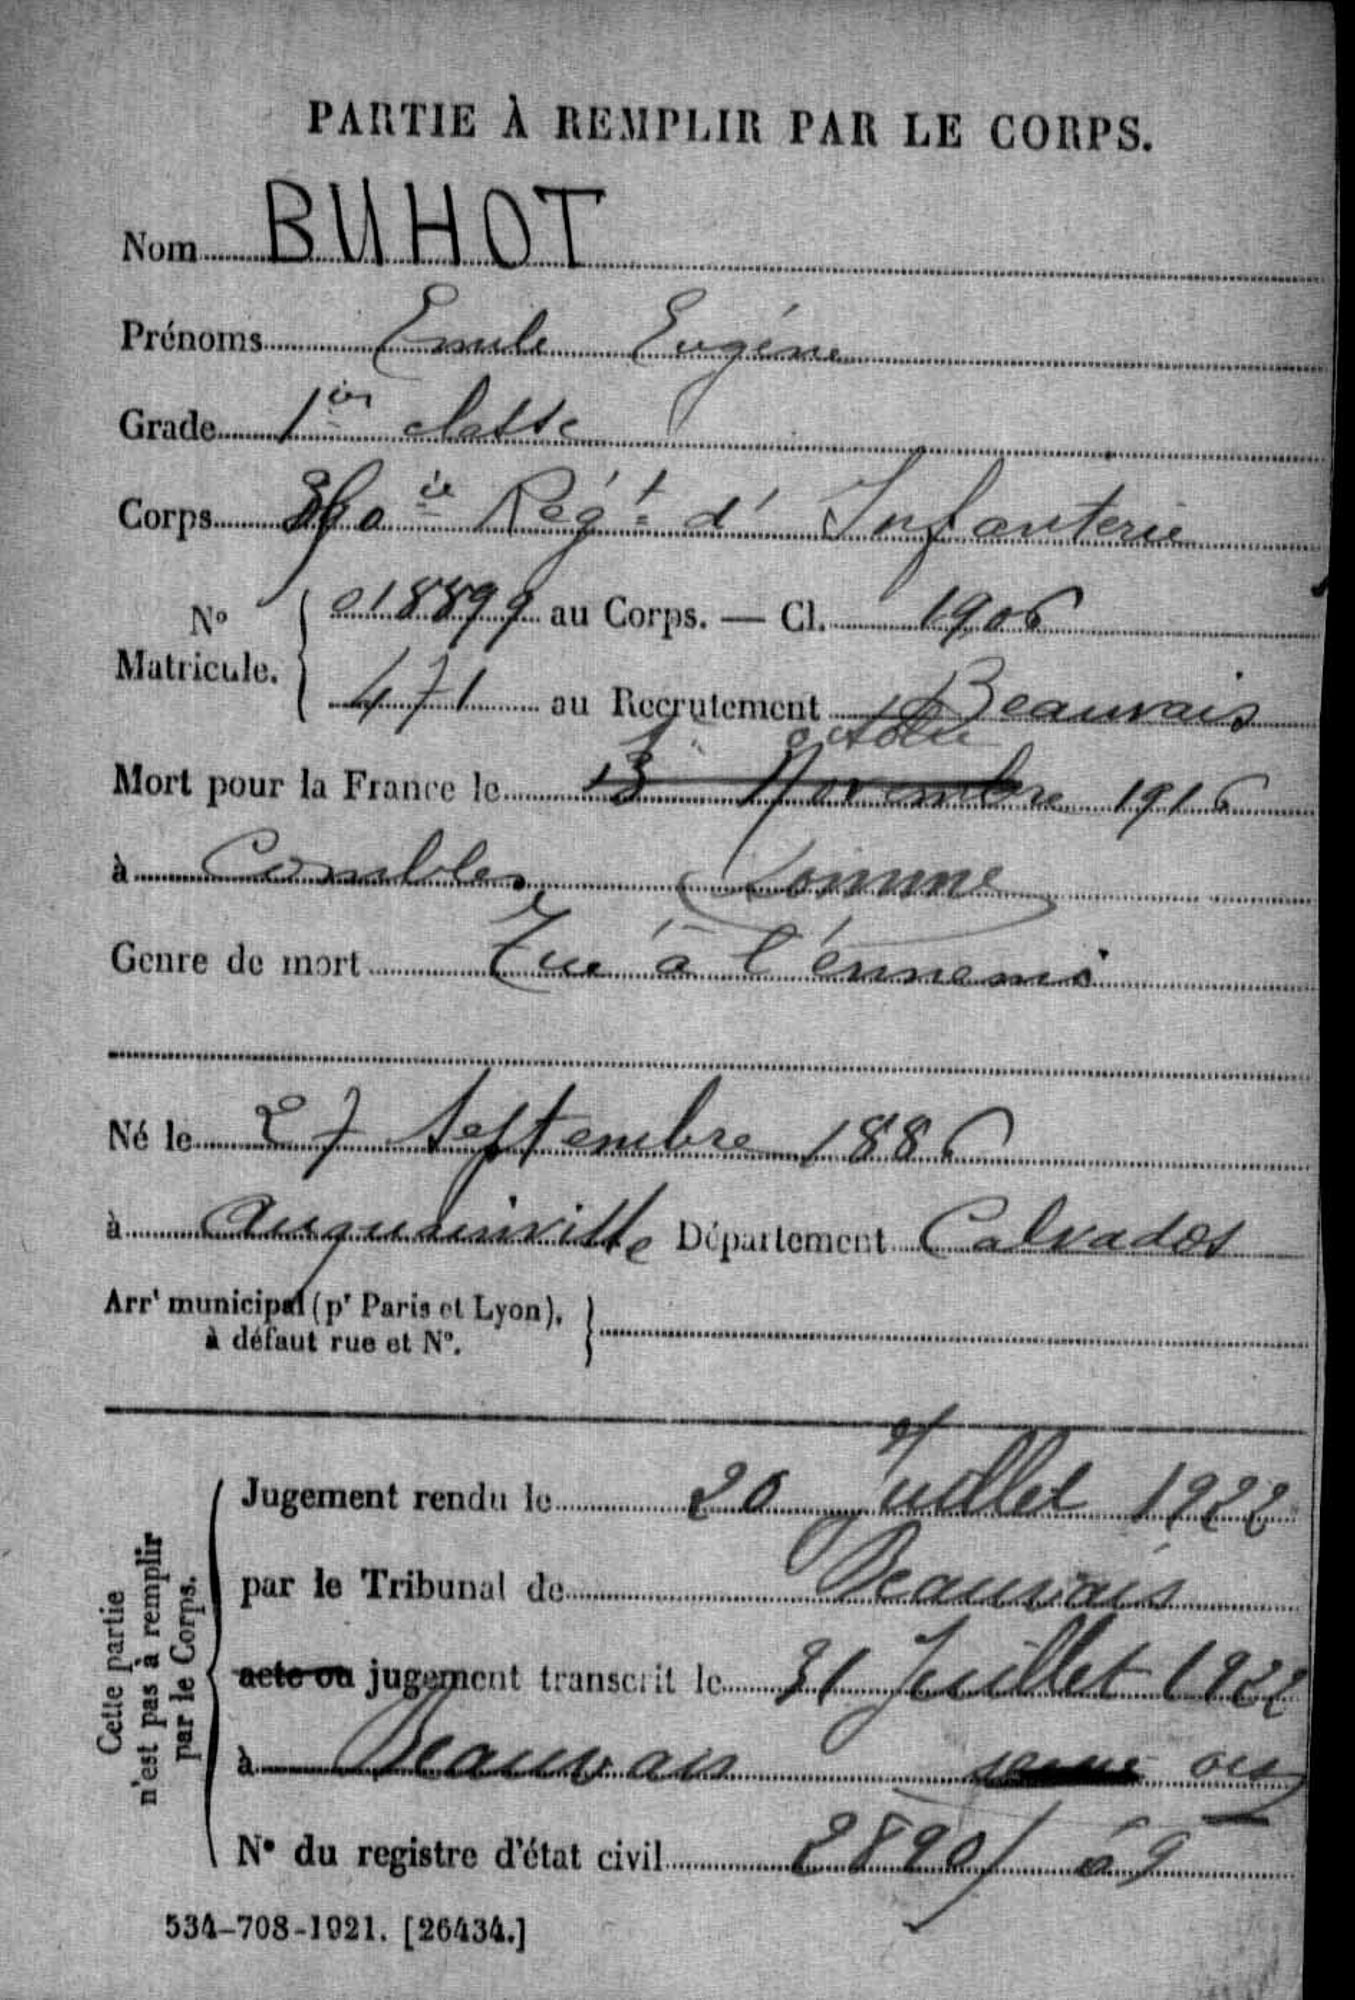 PARTIE À REMPLIR PAR LE CORPS.
Nom BUHOT
Prénoms Emile Eugène
Grade 1ière classe
Corps Régt d'Infanterie
No Matricule. 018899 au Corps. — Cl. 1906
471 au Recrutement Beauvais
octobre
Mort pour la France le 13 Novembre 1916
à Combles Somme
Genre de mort Tué à l'énnemi
Né le 27 Septembre 1886
à Auquainville Département Calvados
Arrt municipal (pr Paris et Lyon),
à défaut rue et No.
Cette partie
n'est pas à remplir
par le Corps.
Jugement rendu le 20 Juillet 1922
par le Tribunal de Beauvais
acte ou jugement transcrit le 31 Juillet 1922
à Beauvais
No du registre d'état civil 2890/
534-708-1921. [26434.]